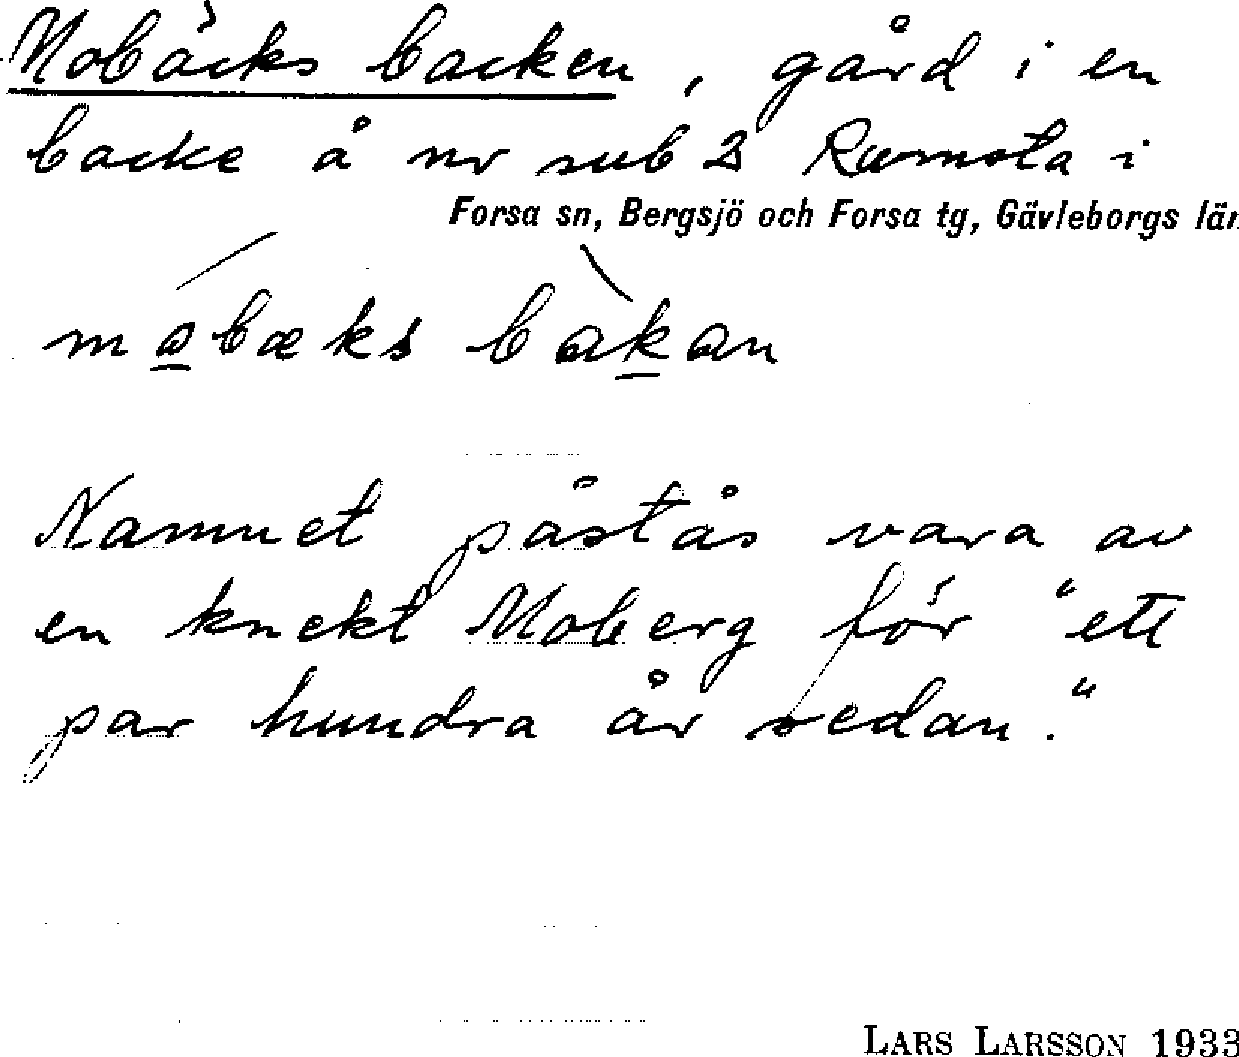 Mobäcks backen, gård i en
backe å nr sub 2 Ramsta i
Forsa sn, Bergsjö och Forsa tg, Gävleborgs län
mobæks bakan
Namnet påstås vara av
en knekt Moberg för "ett
par hundra år sedan."
LARS LARSSON 1933